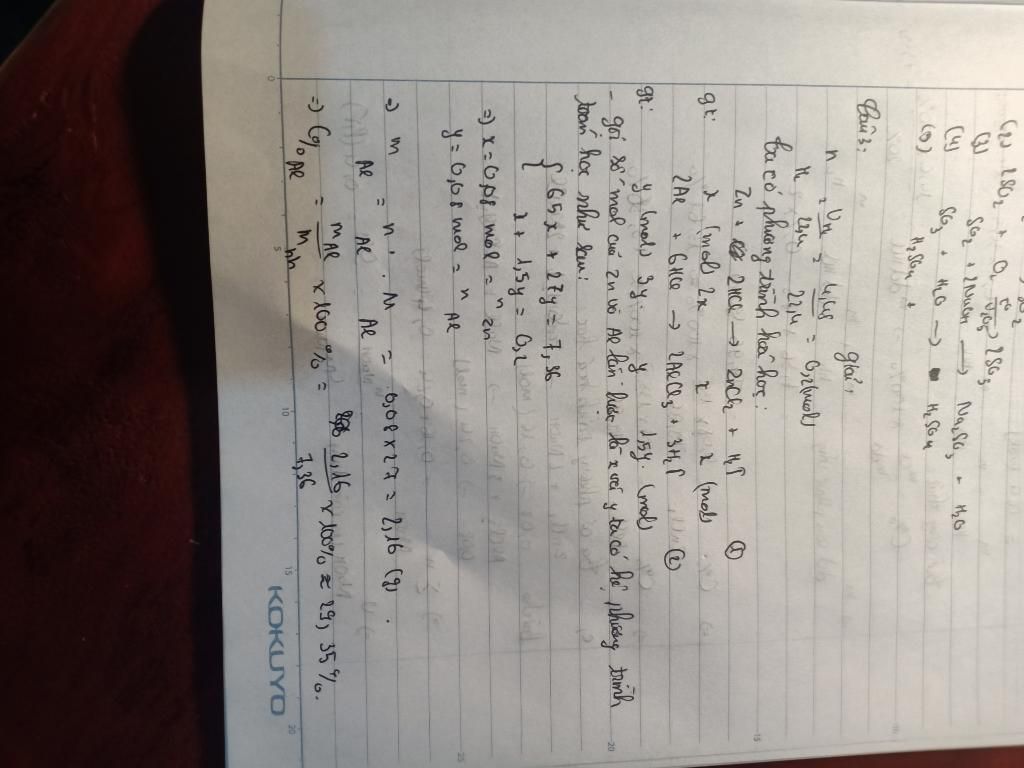 (2) 2SO₂ + O₂ →(t°, V₂O₅) 2SO₃
(3) SO₂ + 2NaOH → Na₂SO₃ + H₂O
(4) SO₃ + H₂O → H₂SO₄
(5) H₂SO₄ +
Bài 3:
giải
n H₂ = V H₂ / 22,4 = 4,48 / 22,4 = 0,2 (mol)
ta có phương trình hoá học:
Zn + 2HCl → ZnCl₂ + H₂↑ (1)
gt: x (mol) 2x x x (mol)
2Al + 6HCl → 2AlCl₃ + 3H₂↑ (2)
gt: y (mol) 3y y 1,5y (mol)
- gọi số mol của Zn và Al lần lượt là x và y ta có hệ phương trình
toán học như sau:
{ 65x + 27y = 7,36
x + 1,5y = 0,2
=) x = 0,08 mol = n Zn
y = 0,08 mol = n Al
=) m Al = n Al . M Al = 0,08 x 27 = 2,16 (g).
=) C% Al = m Al / m hh x 100% = 2,16 / 7,36 x 100% ≈ 29,35%.
KOKUYO
0
5
10
15
20
15
20
25